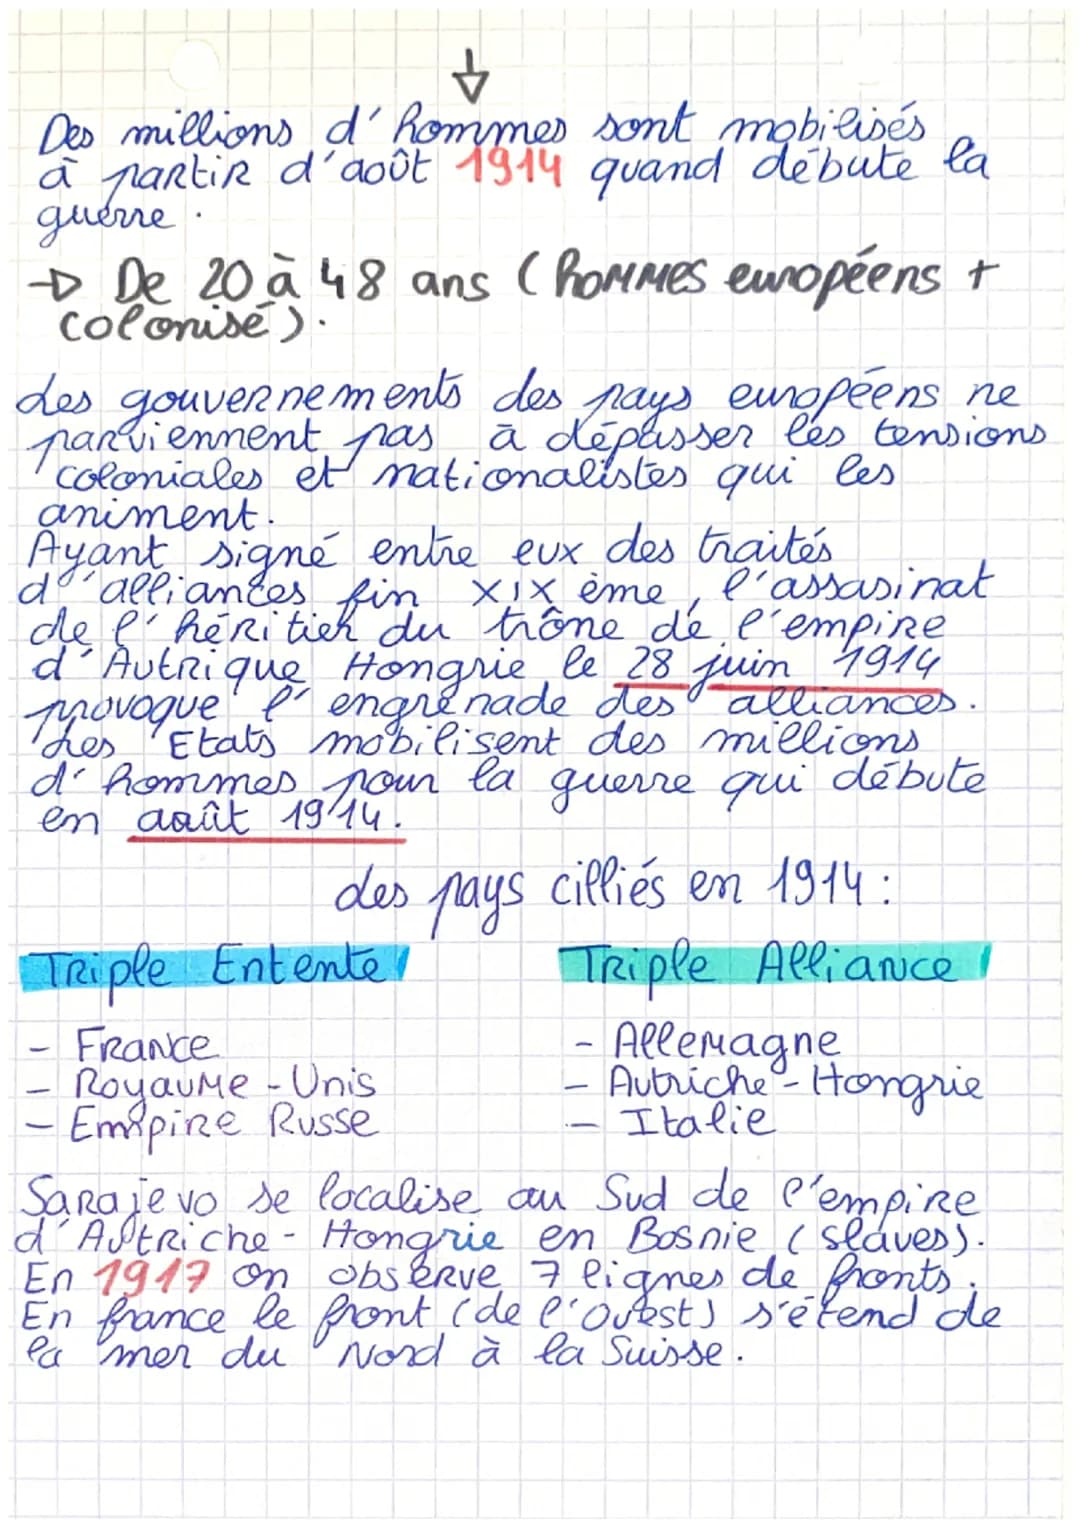 Des millions d'hommes sont mobilisés
à partir d'août 1914 quand débute la
guerre.
→ De 20 à 48 ans (hommes européens +
colonisé).
Les gouvernements des pays européens ne
parviennent pas à dépasser les tensions
coloniales et nationalistes qui les
animent.
Ayant signé entre eux des traités
d'alliances fin XIX ème, l'assasinat
de l'héritier du trône de l'empire
d'Autrique Hongrie le 28 juin 1914
provoque l'engrenade des alliances.
Les Etats mobilisent des millions
d'hommes pour la guerre qui débute
en août 1914.
des pays cilliés en 1914 :
Triple Entente
Triple Alliance
- France
- Royaume-Unis
- Empire Russe
- Allemagne
- Autriche-Hongrie
- Italie
Sarajevo se localise au Sud de l'empire
d'Autriche-Hongrie en Bosnie (slaves).
En 1917 on observe 7 lignes de fronts.
En france le front (de l'Ouest) s'étend de
la mer du Nord à la Suisse.